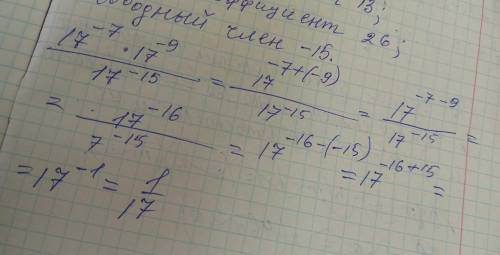 коэффициент 26;
свободный член -15.
17⁻⁷ · 17⁻⁹ / 17⁻¹⁵ = 17⁻⁷⁺⁽⁻⁹⁾ / 17⁻¹⁵ = 17⁻⁷⁻⁹ / 17⁻¹⁵ =
= 17⁻¹⁶ / 7⁻¹⁵ = 17⁻¹⁶⁻⁽⁻¹⁵⁾ = 17⁻¹⁶⁺¹⁵ =
= 17⁻¹ = 1/17